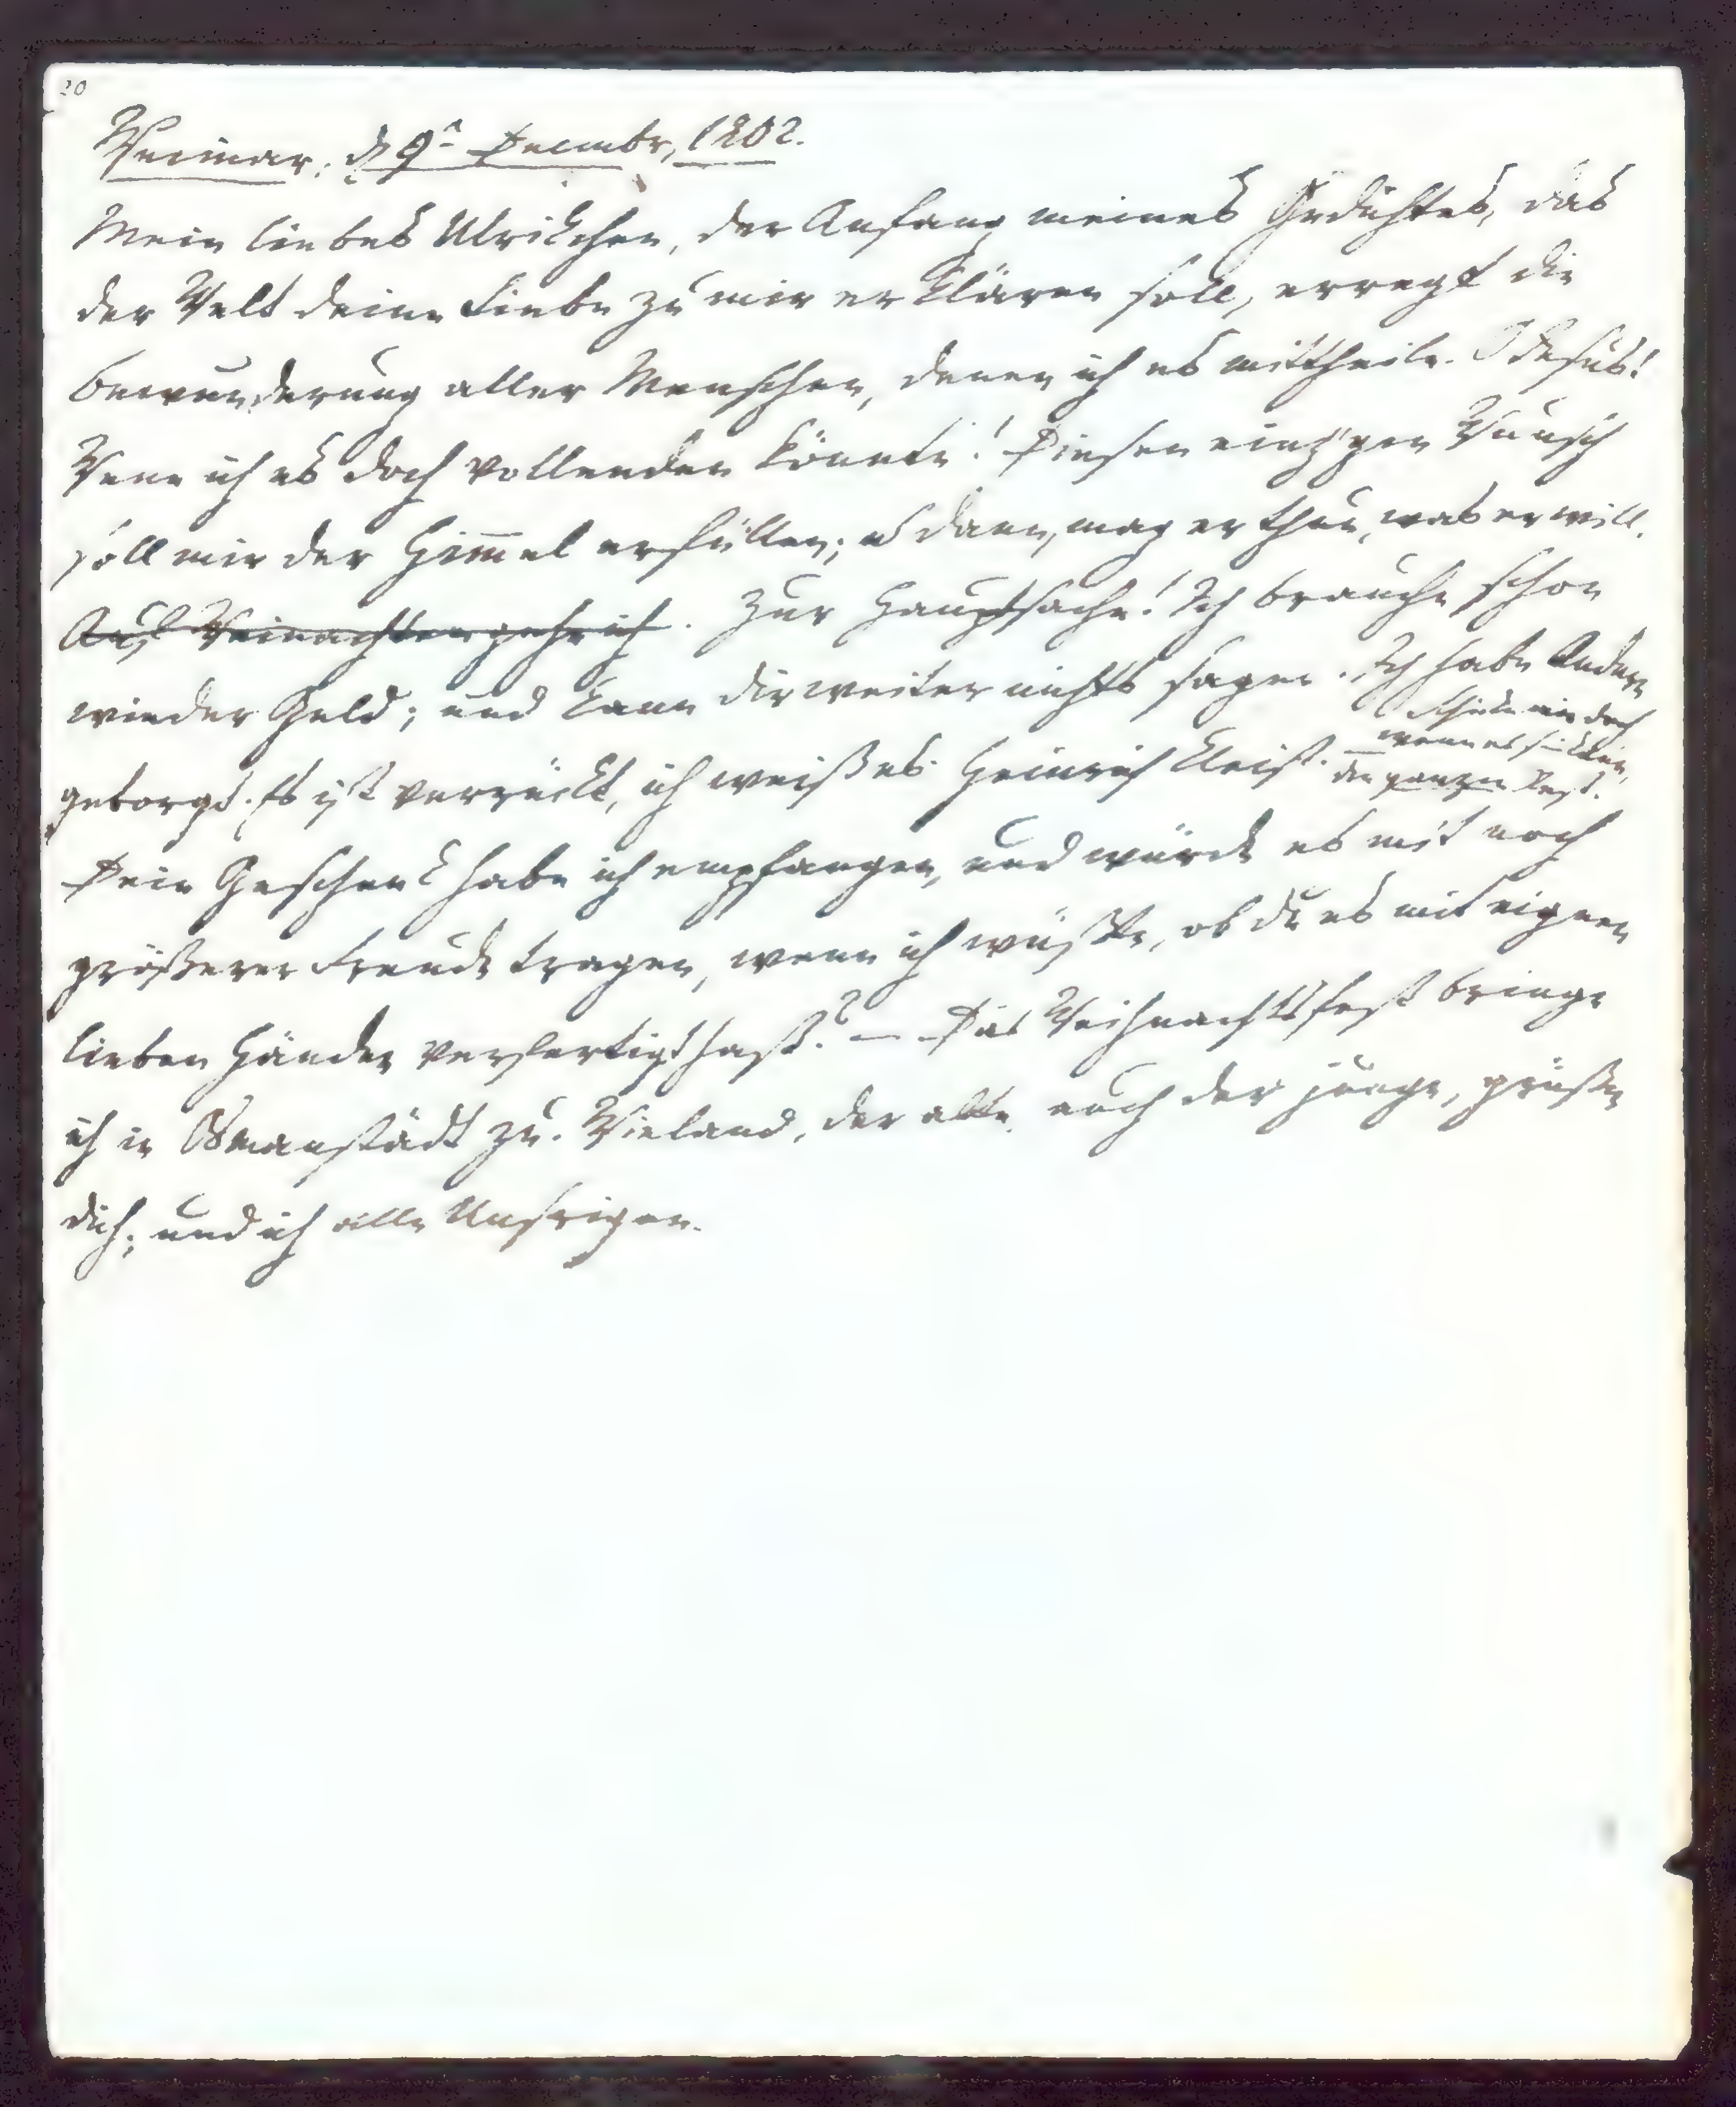 20
Weimar, d 9ᵗ Decembr, 1802.
Mein liebes Ulrickchen, der Anfang meines Gedichtes, das
der Welt deine Liebe zu mir erklären soll, erregt die
Bewunderung aller Menschen, denen ich es mittheile. O Jesus!
Wenn ich es doch vollenden könnte! Diesen einz'gen Wunsch
soll mir der Himmel erfüllen; u dann, mag er thun, was er will.
Auf Weinachten gehe ich. Zur Hauptsache! Ich brauche schon
wieder Geld; und kann dir weiter nichts sagen. Ich habe Andern
geborgt. Es ist verrückt, ich weiß es. Heinrich Kleist.
Schicke mir doch
wenn es sein kann,
den ganzen Rest.
Dein Geschenk habe ich empfangen, und würde es mit noch
größerer Freude tragen, wenn ich wüßte, ob du es mit eignen
lieben Händen verfertigt hast? — Das Weihnachtsfest bringe
ich in Osmanstädt zu. Wieland, der alte, auch der junge, grüßen
dich; und ich alle Unsrigen.